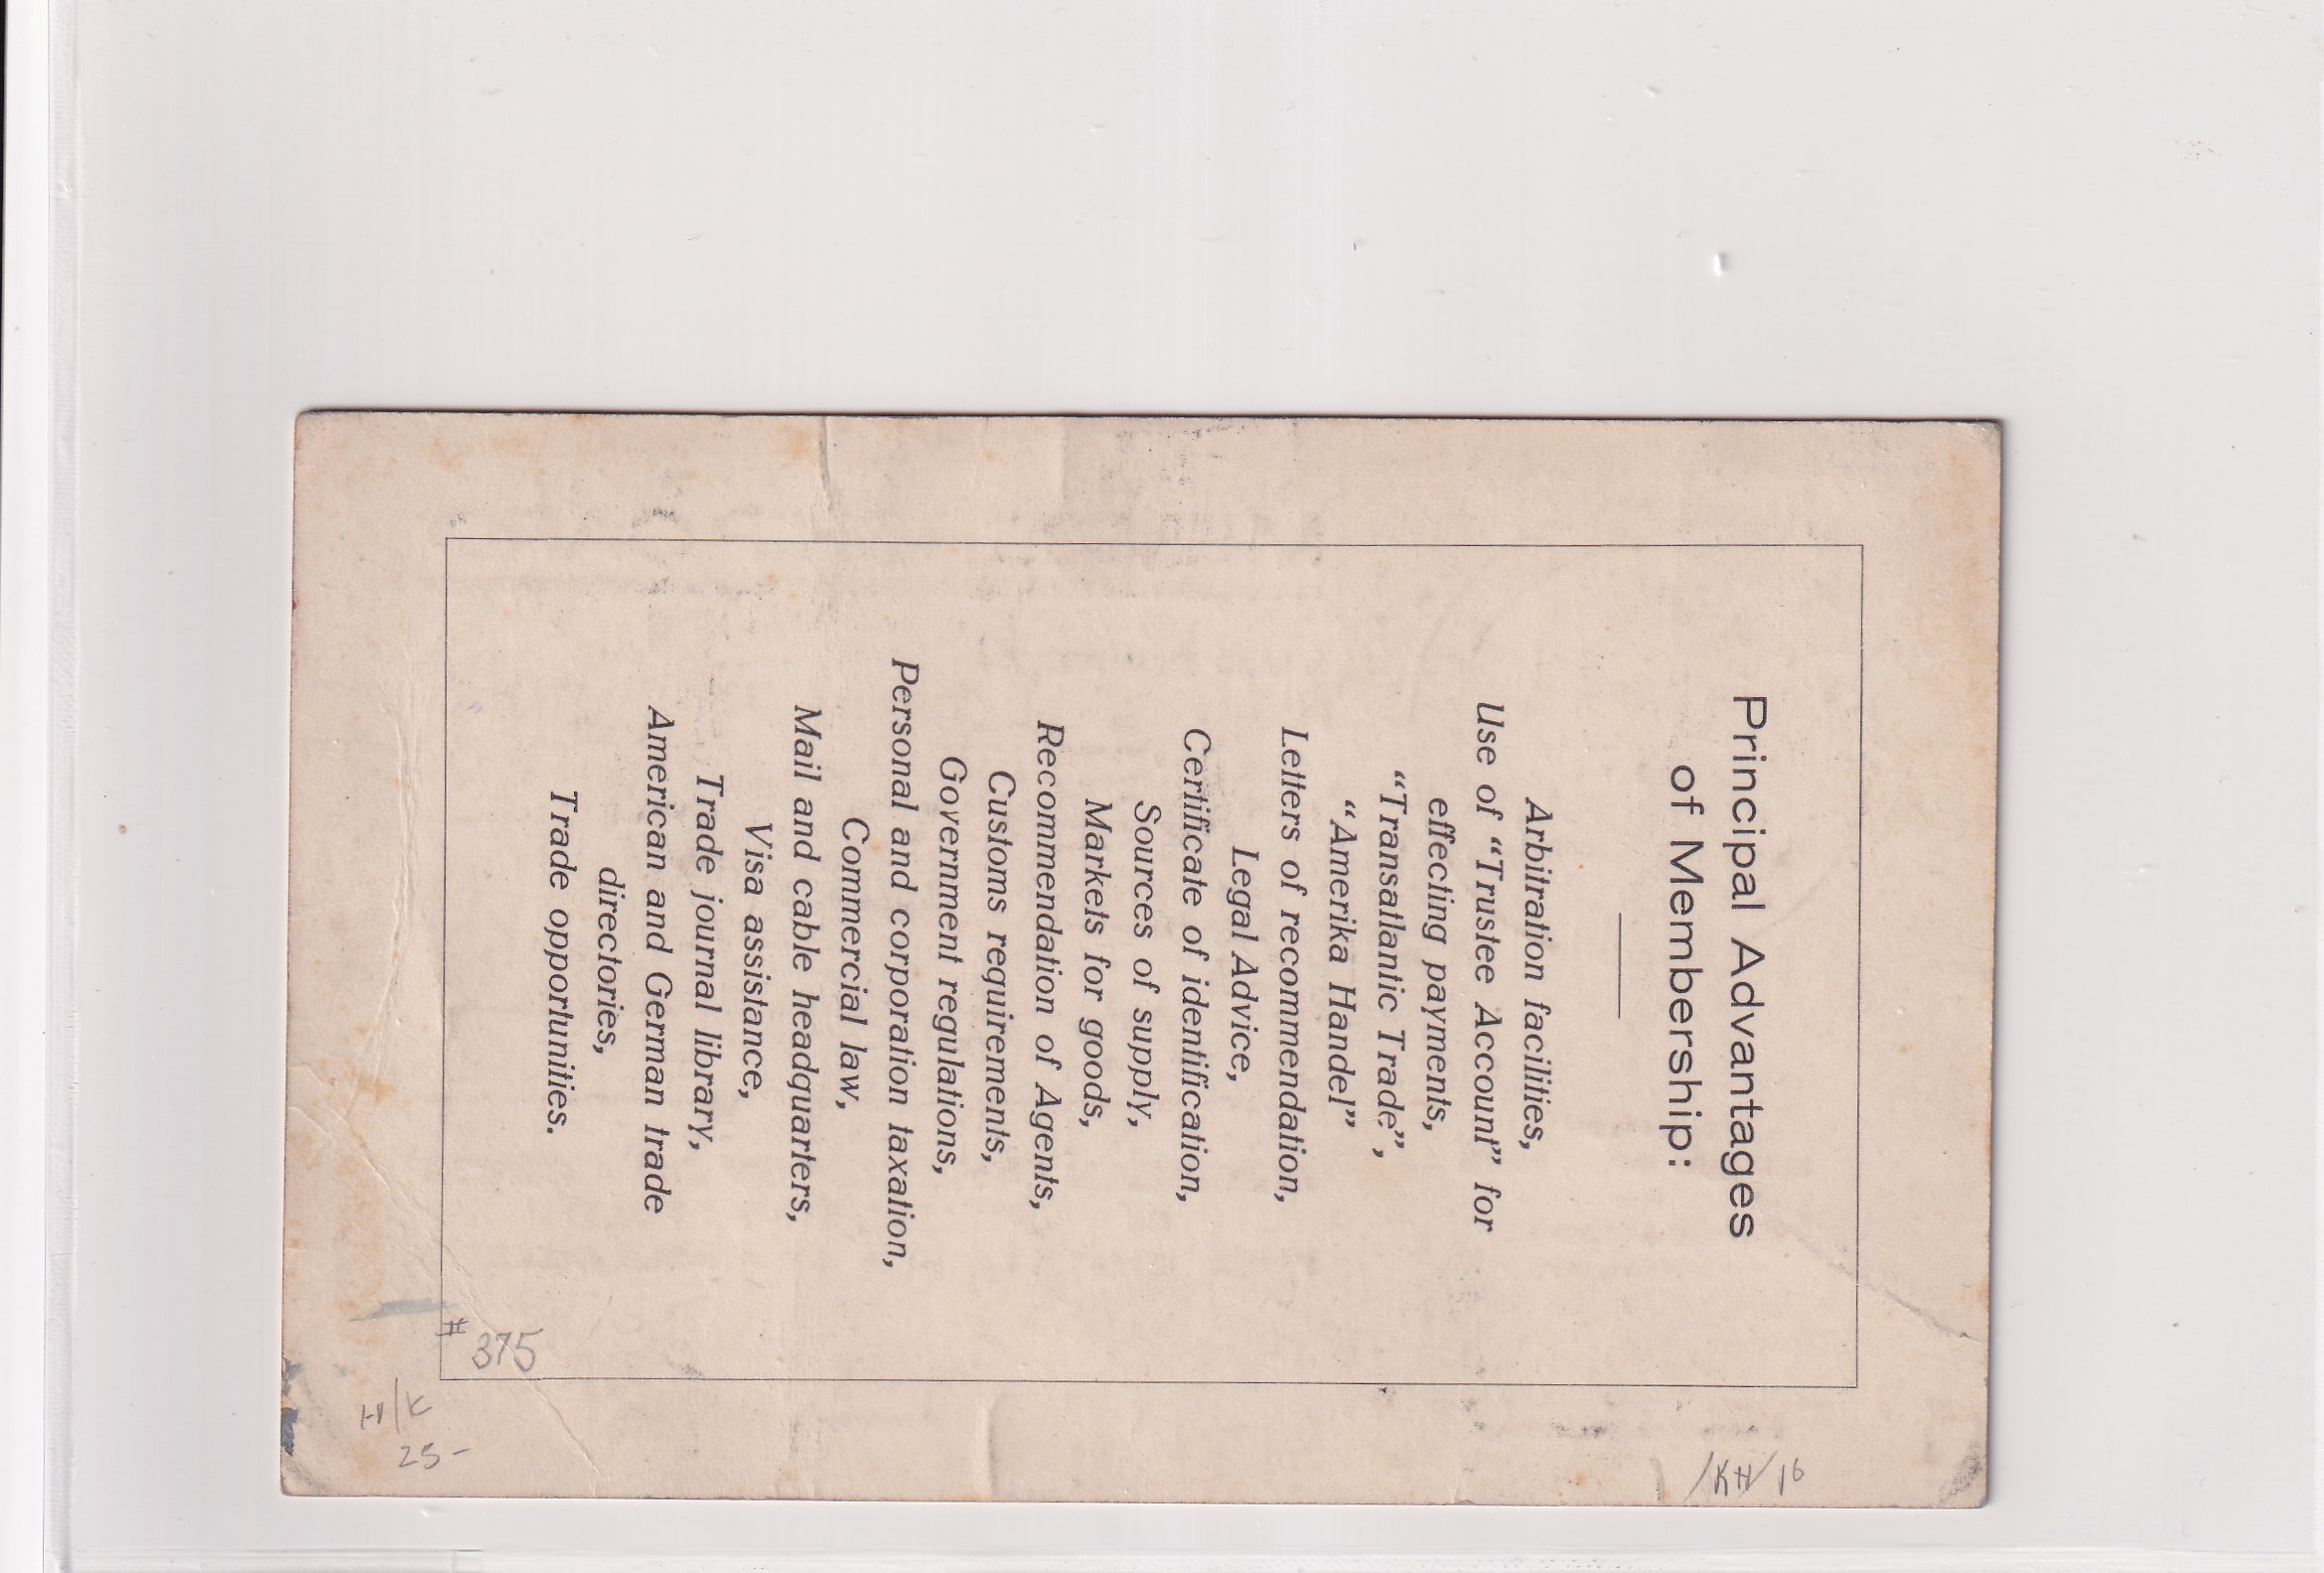 Principal Advantages
of Membership:
Arbitration facilities,
Use of “Trustee Account” for
effecting payments,
“Transatlantic Trade”,
“Amerika Handel”
Letters of recommendation,
Legal Advice,
Certificate of identification,
Sources of supply,
Markets for goods,
Recommendation of Agents,
Customs requirements,
Government regulations,
Personal and corporation taxation,
Commercial law,
Mail and cable headquarters,
Visa assistance,
Trade journal library,
American and German trade
directories,
Trade opportunities.
#375
H/K
25-
/KH/16